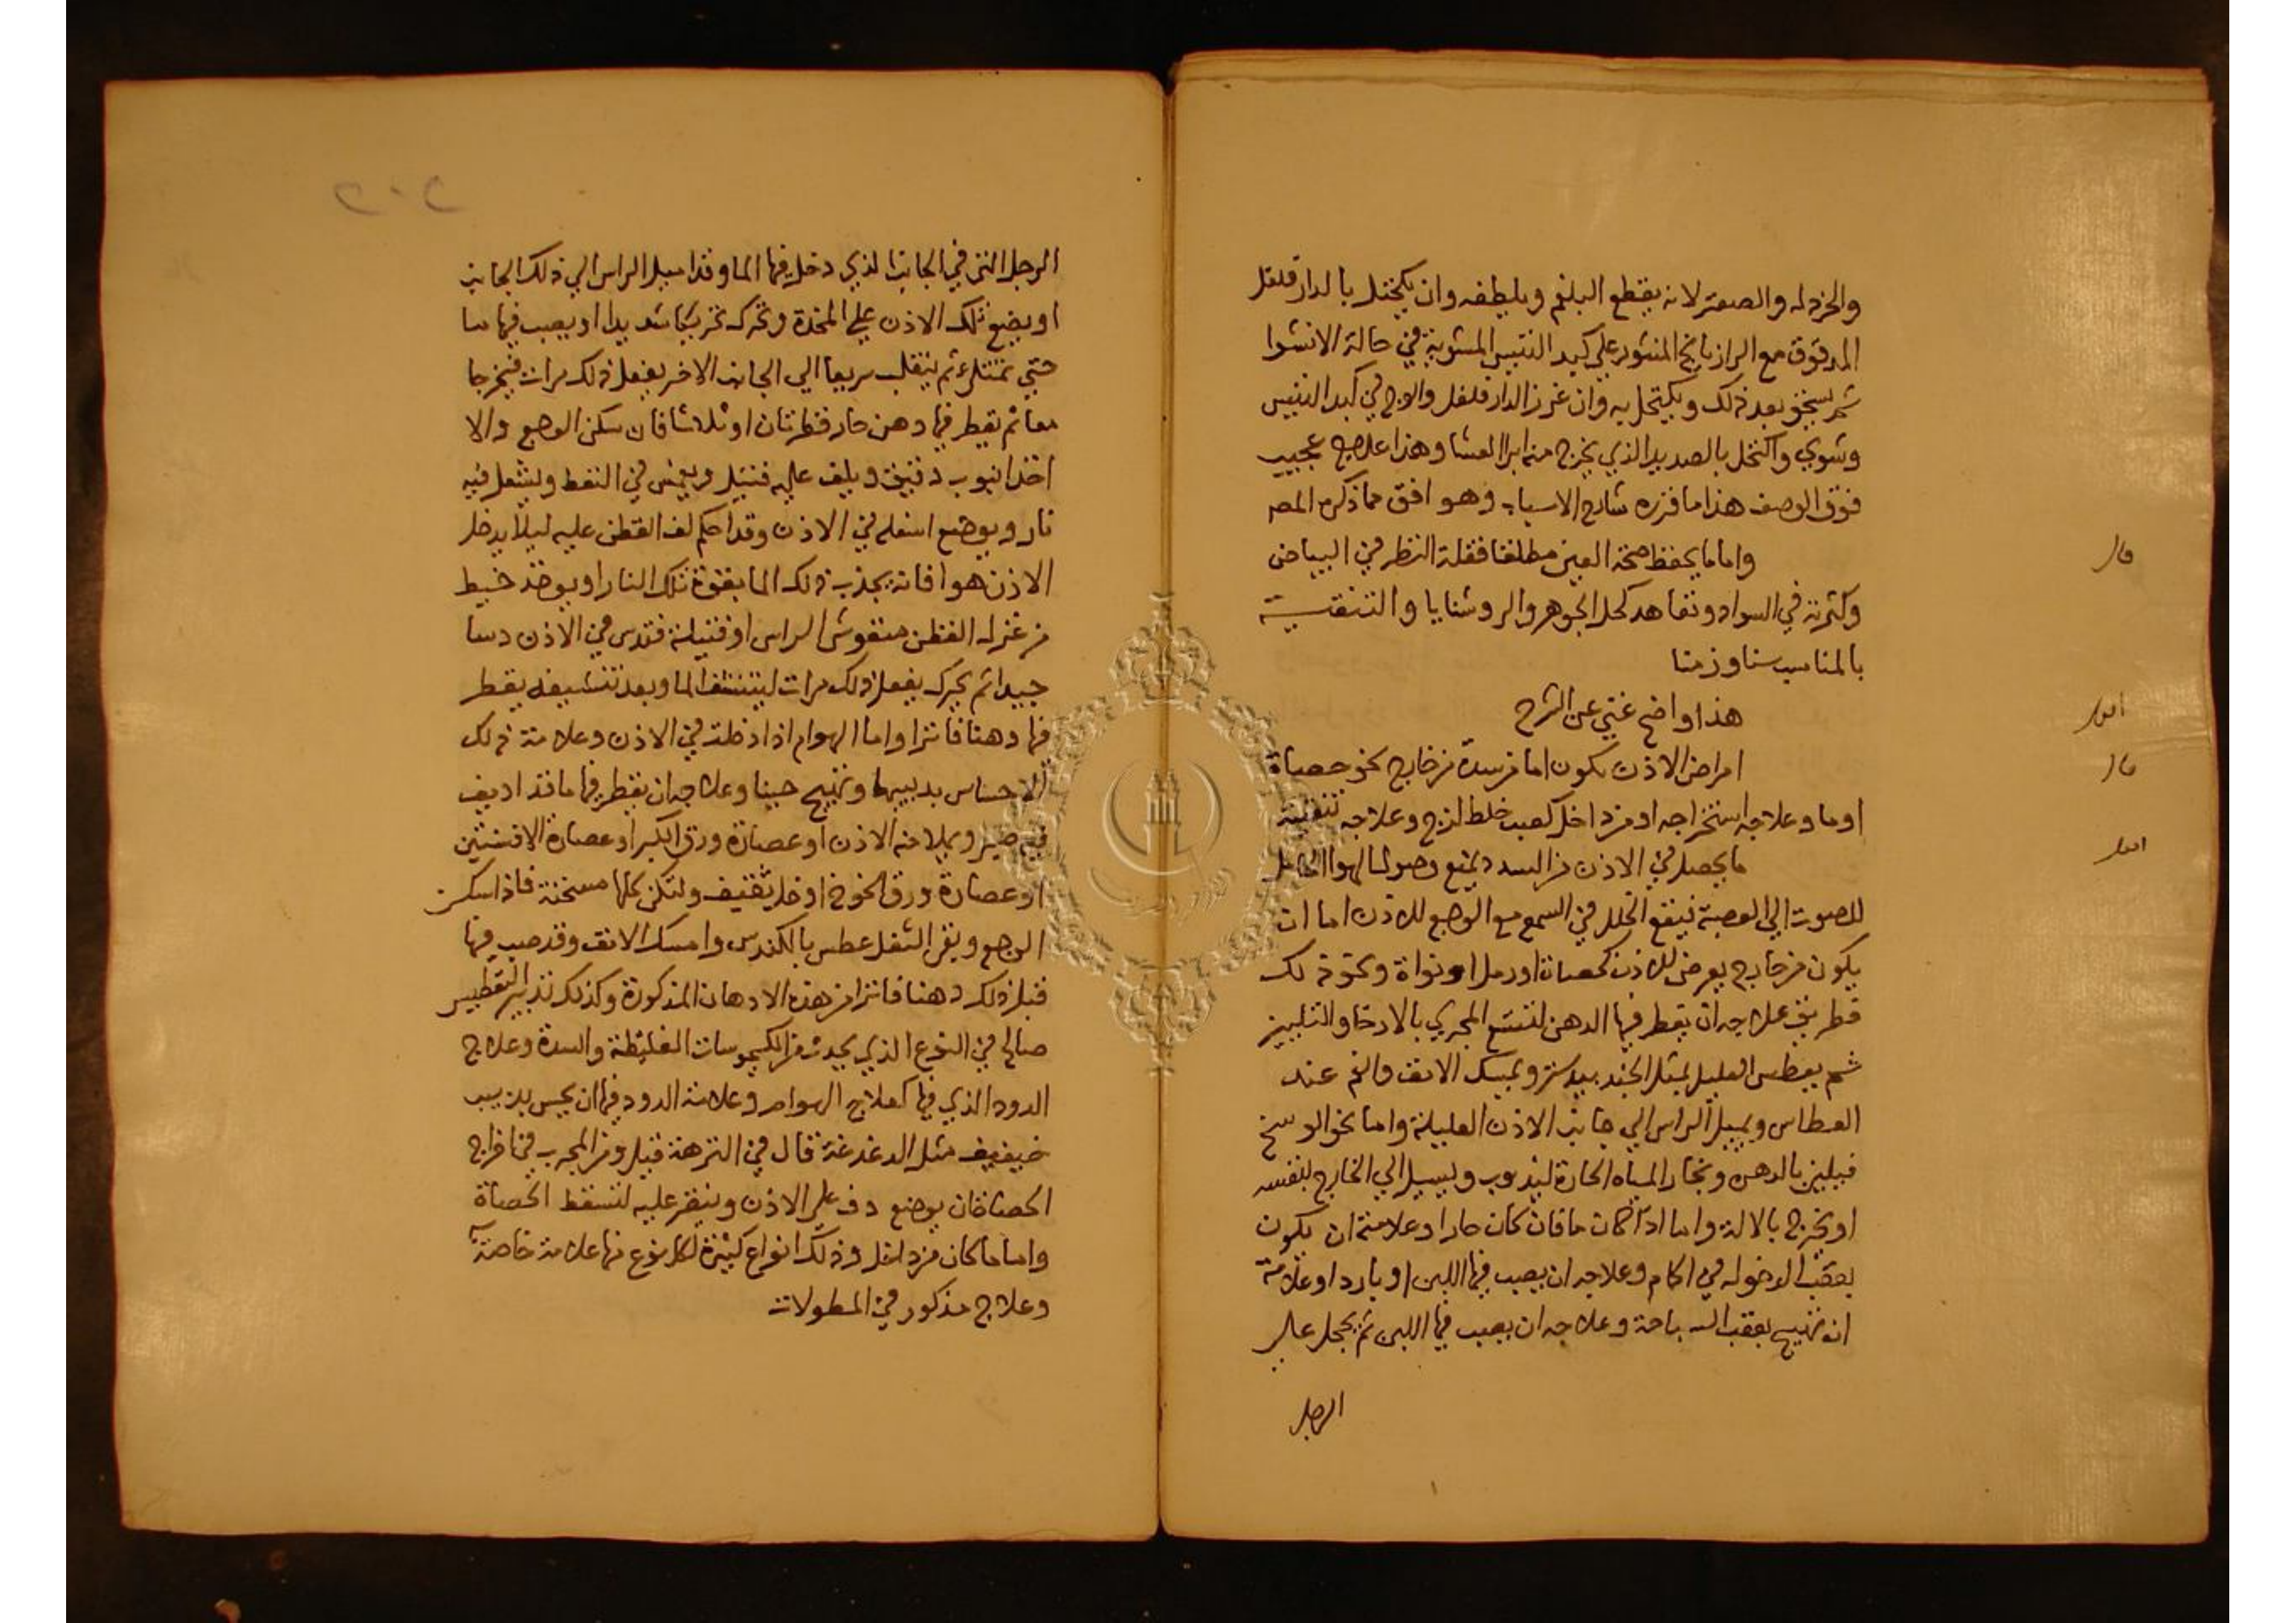 والخردل والصعتر لانه يقطع البلغم ويلطفه وان يكتحل بالدارفلفل
المدقوق مع الرازيانج المنثور على كبد التيس المشوية في حالة الانشوا
ثم يسحق بعد ذلك ويكتحل به وان غرز الدارفلفل والوج في كبد التيس
وشوي واكتحل بالصديد الذي يخرج منه ابرا العشا وهذا علاج عجيب
فوق الوصف هذا ما قرره شارح الاسباب وهو افق مما ذكره المصـ
قال
واما ما يحفظ صحة العين مطلقا فقلة النظر في البياض
وكثرته في السواد وتعاهد كحل الجوهر والروشنايا والتنقية
بالمناسب سنا وزمنا
اقول
هذا واضح غني عن الشرح
قال
امراض الاذن يكون اما من سدة من خارج نحو حصاة
او ما وعلاجه استخراجه او من داخل كصب خلط لزج وعلاجه تنقيته
اقول
ما يحصل في الاذن من السدد يمنع وصول الهوا الحامل
للصوت الي العصبة فيقع الخلل في السمع مع الوجع للاذن اما ان
يكون من خارج يعرض للاذن كحصاة او رمل او نواة ونحو ذلك
فطريق علاجه ان يقطر فيها الدهن لتتسع المجري بالارخا والتليين
ثم يعطس العليل بمثل الجندبيدستر ويمسك الانف والفم عند
العطاس ويميل الراس الي جانب الاذن العليلة واما نحو الوسخ
فيلين بالدهن وبخار المياه الحارة ليذوب ويسيل الي الخارج بنفسه
او يخرج بالالة واما اذا كان ما فان كان حارا وعلامته ان يكون
بعقب الدخول في الحمام وعلاجه ان يصب فيها اللبن او باردا وعلامة
انه تهيج بعقب السباحة وعلاجه ان يصب فيها اللبن ثم يحجل على
الرجل
٢٠٢
الرجل التي في الجانب الذي دخل فيها الما وقد اميل الراس الي ذلك الجانب
او يضع تلك الاذن على المخدة وتحرك تحريكا شديدا او يصب فيها ما
حتي تمتلئ ثم ينقلب سريعا الي الجانب الاخر يفعل ذلك مرات فيخرجا
معا ثم يقطر فيها دهن حار قطرتان او ثلاثا فان سكن الوجع والا
اخذ انبوب دقيق ويلف عليه فتيل ويغمس في النفط ويشعل فيه
نار ويوضع اسفله في الاذن وقد احكم لف القطن عليه ليلا يدخل
الاذن هوا فانه يجذب ذلك الما بقوة تلك النار او يوخذ خيط
من غزل القطن منقوش الراس او فتيلة فتدس في الاذن دسا
جيدا ثم يحرك يفعل ذلك مرات ليتنشف الما وبعد تنشيفه يقطر
فيها دهنا فاترا واما الهوام اذا دخلت في الاذن وعلامة ذلك
الاحساس بدبيبها وتهيج حينا وعلاجه ان يقطر فيها ما قد اديف
فيه صبر ويملا منه الاذن او عصارة ورق الكبر او عصارة الافسنتين
او عصارة ورق الخوخ او خل ثقيف ولتكن كلها مسخنة فاذا سكن
الوجع وبقي الثقل عطس بالكندس وامسك الانف وقد صب فيها
قبل ذلك دهنا فاترا من هذه الادهان المذكورة وكذلك تدبير التقطير
صالح في النوع الذي يحدث من الكيموسات الغليظة والسدة وعلاج
الدود الذي فيها كعلاج الهوام وعلامة الدود فيها ان يحس بدبيب
خيفيف مثل الدغدغة قال في النزهة قيل ومن المجرب في اخراج
الحصاة ان يوضع دف على الاذن وينقر عليه لتسقط الحصاة
واما ما كان من داخل وذلك انواع كثيرة لكل نوع منها علامة خاصة
وعلاج مذكور في المطولات